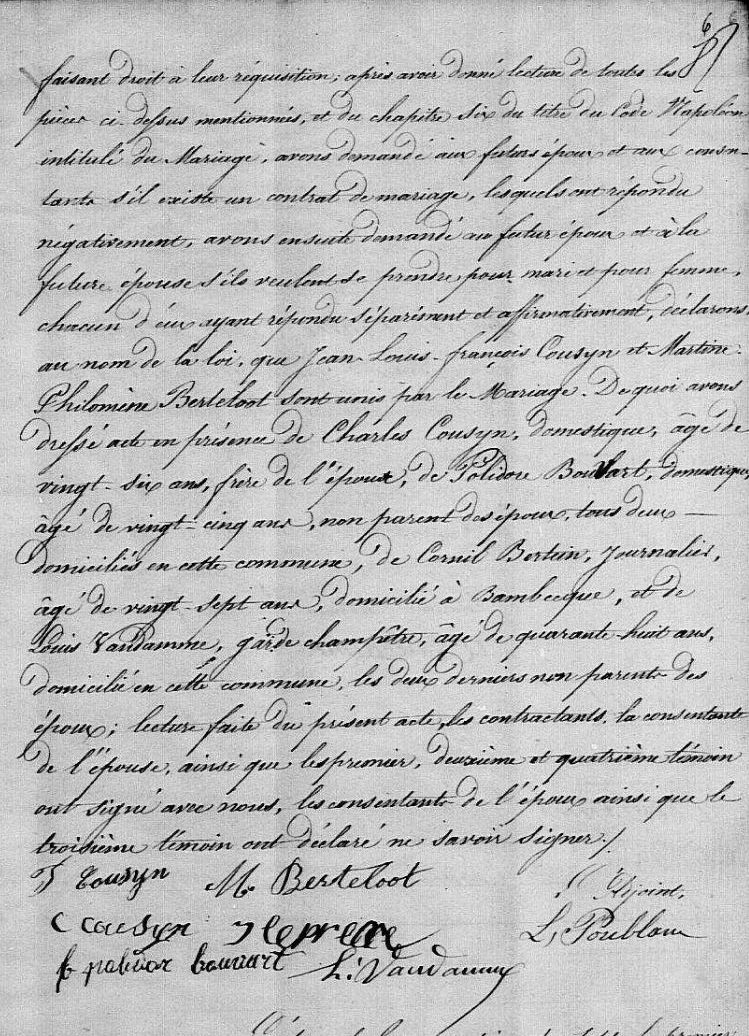 6
faisant droit à leur réquisition; après avoir donné lecture de toutes les
pièces ci-dessus mentionnées, et du chapitre six du titre du Code Napoléon
intitulé du Mariage, avons demandé aux futurs époux et aux consen-
tants s'il existe un contrat de mariage, lesquels ont répondu
négativement, avons ensuite demandé au futur époux et à la
future épouse s'ils veulent se prendre pour mari et pour femme,
chacun d'eux ayant répondu séparément et affirmativement, déclarons,
au nom de la loi, que Jean-Louis-françois Cousyn et Martine-
Philomène Berteloot sont unis par le Mariage. De quoi avons
dressé acte en présence de Charles Cousyn, domestique, âgé de
vingt-six ans, frère de l'époux, de Polidore Bouvart, domestique,
âgé de vingt-cinq ans, non parent des époux, tous deux —
domiciliés en cette commune, de Cornil Bertein, Journalier,
âgé de vingt-sept ans, domicilié à Bambecque, et de
Louis Vandamme, garde champêtre, âgé de quarante-huit ans,
domicilié en cette commune, les deux derniers non parents des
époux; lecture faite du présent acte, les contractants, la consentante
de l'épouse, ainsi que les premier, deuxième et quatrième témoin
ont signé avec nous, les consentants de l'époux ainsi que le
troisième témoin ont déclaré ne savoir signer./
Cousyn M. Berteloot
L'Adjoint,
C cousyn
L. Poublan
bouvart L. Vandamme